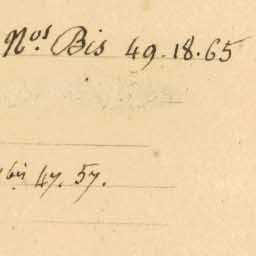 Nos. Bis 49.18.65
bis 47. 57.